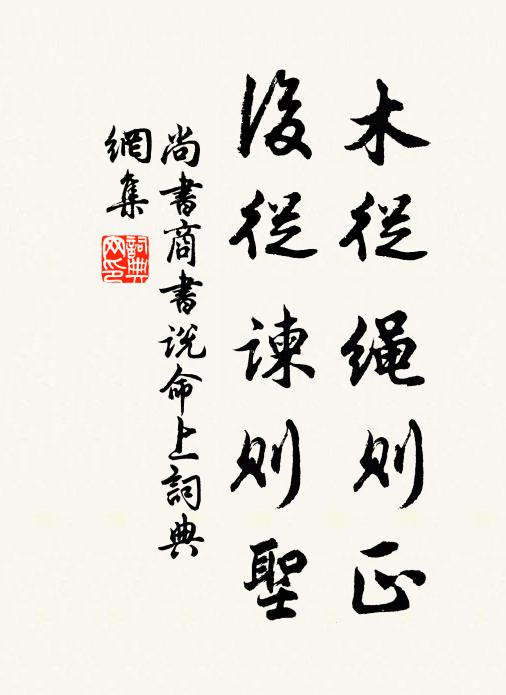 木從繩則正
後從諫則聖
尚書商書說命上詞典
網集
詞典网印